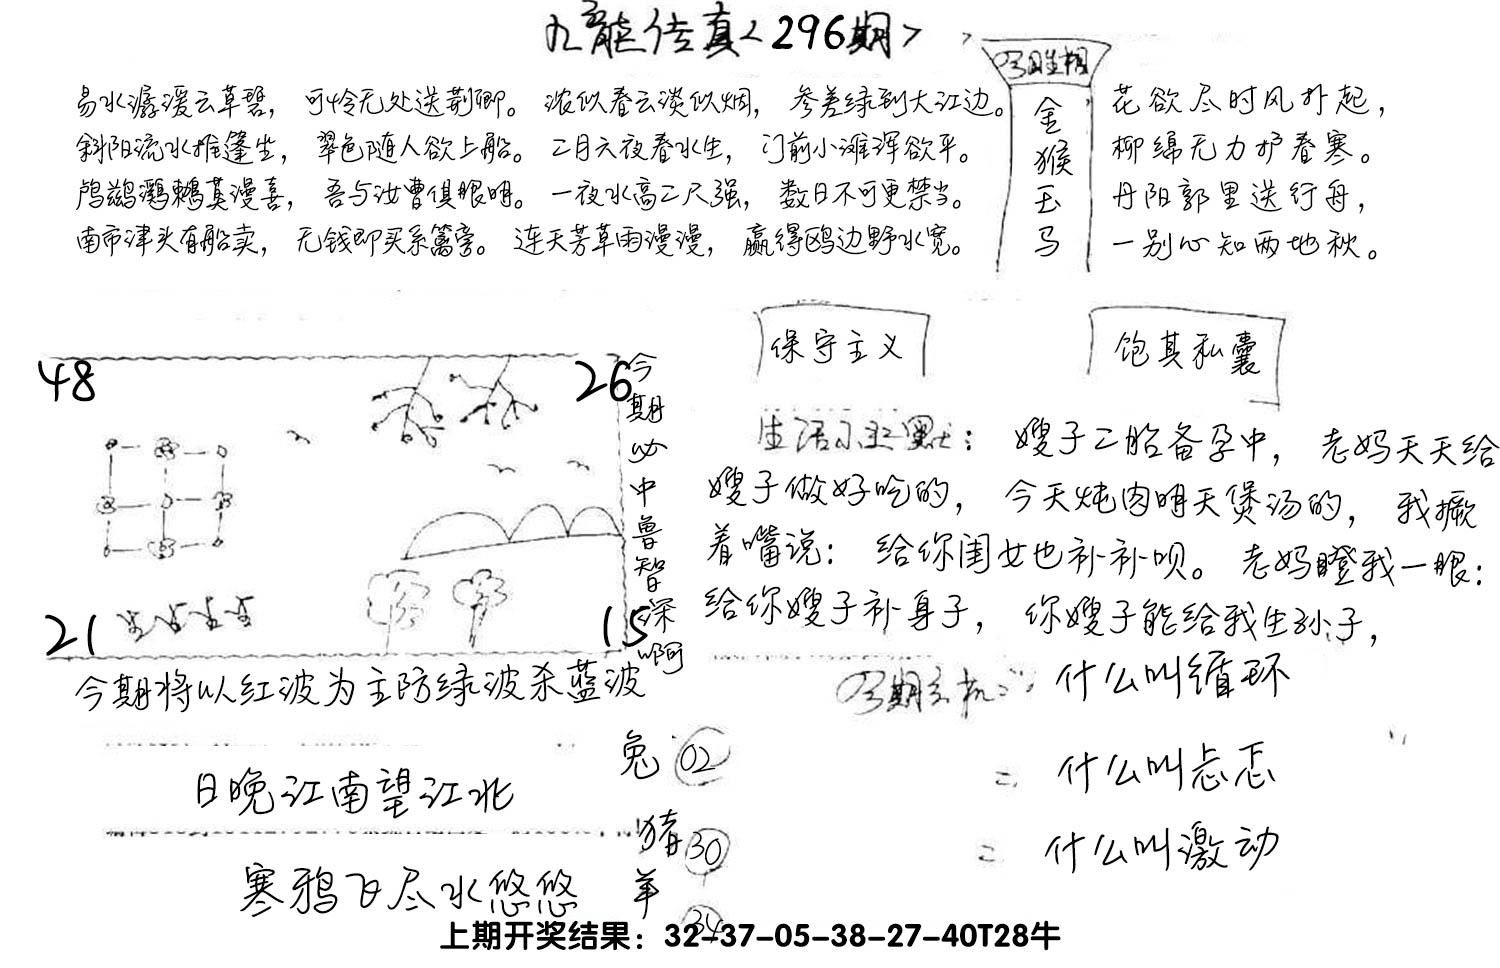 九龙传真<296期>
易水潺湲云草碧，可怜无处送荆卿。浓似春云淡似烟，参差绿到大江边。
斜阳流水推篷坐，翠色随人欲上船。二月六夜春水生，门前小滩浑欲平。
鸬鹚鸂鶒莫漫喜，吾与汝曹俱眼明。一夜水高二尺强，数日不可更禁当。
南市津头有船卖，无钱即买系篱旁。连天芳草雨漫漫，赢得鸥边野水宽。
金
猴
玉
马
花欲尽时风扑起，
柳绵无力护春寒。
丹阳郭里送行舟，
一别心知两地秋。
保守主义
饱其私囊
48
26
21
15
今期必中鲁智深啊
今期将以红波为主防绿波杀蓝波
生活小幽默：嫂子二胎备孕中，老妈天天给
嫂子做好吃的，今天炖肉明天煲汤的，我撅
着嘴说：给你闺女也补补呗。老妈瞪我一眼：
给你嫂子补身子，你嫂子能给我生孙子，
什么叫循环
二 什么叫忐忑
二 什么叫激动
日晚江南望江北
寒鸦飞尽水悠悠
兔 02
猪 30
羊 34
上期开奖结果：32-37-05-38-27-40T28牛